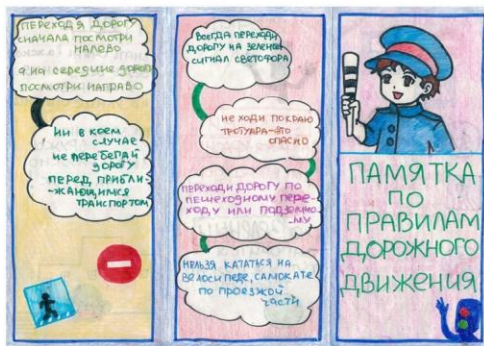 ПЕРЕХОДЯ ДОРОГУ
СНАЧАЛА ПОСМОТРИ
НАЛЕВО
а на середине дороги
ПОСМОТРИ НАПРАВО
НИ В КОЕМ
СЛУЧАЕ
НЕ ПЕРЕБЕГАЙ
ДОРОГУ
ПЕРЕД ПРИБЛИ
-ЖАЮЩИМСЯ
ТРАНСПОРТОМ
ВСЕГДА ПЕРЕХОДИ
ДОРОГУ НА ЗЕЛЕНЫЙ
СИГНАЛ СВЕТОФОРА
НЕ ХОДИ ПО КРАЮ
ТРОТУАРА-ЭТО
ОПАСНО
ПЕРЕХОДИ ДОРОГУ ПО
ПЕШЕХОДНОМУ ПЕРЕ-
ХОДУ ИЛИ ПОДЗЕМНО
-МУ
НЕЛЬЗЯ КАТАТЬСЯ НА
ВЕЛОСИПЕДЕ, САМОКАТЕ
ПО ПРОЕЗЖОЙ
ЧАСТИ
ПАМЯТКА
ПО
ПРАВИЛАМ
ДОРОЖНОГО
ДВИЖЕНИЯ